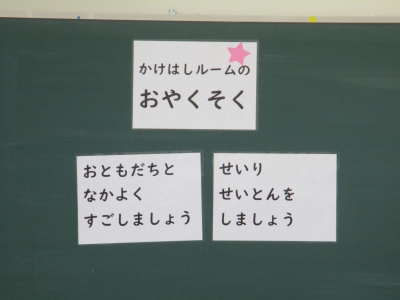 かけはしルームの
おやくそく
おともだちと
なかよく
すごしましょう
せいり
せいとんを
しましょう